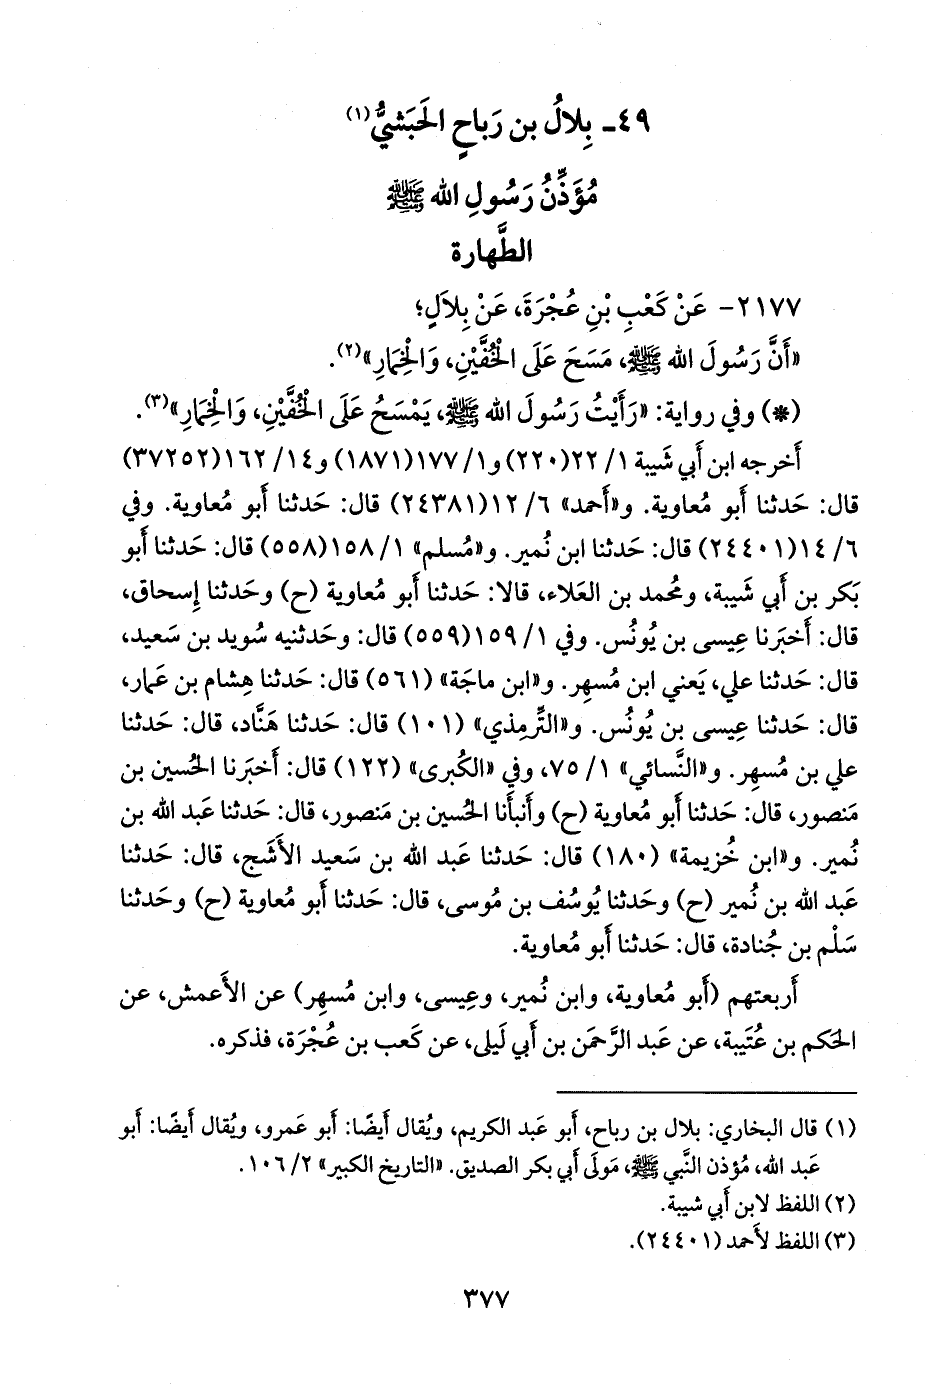 ٤٩ـ بِلالُ بن رَباحٍ الحَبَشيُّ(١)
مُؤَذِّنُ رَسُولِ الله ﷺ
الطَّهارة
٢١٧٧- عَنْ كَعْبِ بْنِ عُجْرَةَ، عَنْ بِلاَلٍ؛
«أَنَّ رَسُولَ الله ﷺ، مَسَحَ عَلَى الْخُفَّيْنِ، وَالْخِمَارِ»(٢).
(*) وفي رواية: «رَأَيْتُ رَسُولَ الله ﷺ، يَمْسَحُ عَلَى الْخُفَّيْنِ، وَالْخِمَارِ»(٣).
أخرجه ابن أبي شيبة ١/ ٢٢(٢٢٠) و١/ ١٧٧(١٨٧١) و١٤/ ١٦٢(٣٧٢٥٢)
قال: حَدثنا أبو مُعاوية. و«أحمد» ٦/ ١٢(٢٤٣٨١) قال: حَدثنا أبو مُعاوية. وفي
٦/ ١٤(٢٤٤٠١) قال: حَدثنا ابن نُمير. و«مُسلم» ١/ ١٥٨(٥٥٨) قال: حَدثنا أبو
بَكر بن أبي شَيبة، ومُحمد بن العَلاء، قالا: حَدثنا أبو مُعاوية (ح) وحَدثنا إِسحاق،
قال: أَخبَرنا عِيسى بن يُونُس. وفي ١/ ١٥٩(٥٥٩) قال: وحَدثنيه سُويد بن سَعيد،
قال: حَدثنا علي، يَعني ابن مُسهِر. و«ابن ماجَة» (٥٦١) قال: حَدثنا هِشام بن عَمار،
قال: حَدثنا عِيسى بن يُونُس. و«التِّرمِذي» (١٠١) قال: حَدثنا هَنَّاد، قال: حَدثنا
علي بن مُسهِر. و«النَّسائي» ١/ ٧٥، وفي «الكُبرى» (١٢٢) قال: أَخبَرنا الحُسين بن
مَنصور، قال: حَدثنا أبو مُعاوية (ح) وأَنبأَنا الحُسين بن مَنصور، قال: حَدثنا عَبد الله بن
نُمير. و«ابن خُزيمة» (١٨٠) قال: حَدثنا عَبد الله بن سَعيد الأَشَج، قال: حَدثنا
عَبد الله بن نُمير (ح) وحَدثنا يُوسُف بن مُوسى، قال: حَدثنا أبو مُعاوية (ح) وحَدثنا
سَلْم بن جُنادة، قال: حَدثنا أبو مُعاوية.
أربعتهم (أَبو مُعاوية، وابن نُمير، وعِيسى، وابن مُسهِر) عن الأَعمش، عن
الحَكم بن عُتَيبة، عن عَبد الرَّحمَن بن أبي لَيلى، عن كَعب بن عُجْرَة، فذكره.
(١) قال البخاري: بلال بن رباح، أَبو عَبد الكريم، ويُقال أَيضًا: أَبو عَمرو، ويُقال أَيضًا: أَبو
عَبد الله، مُؤذن النَّبي ﷺ، مَولَى أَبي بكر الصديق. «التاريخ الكبير» ٢/ ١٠٦.
(٢) اللفظ لابن أَبي شيبة.
(٣) اللفظ لأَحمد (٢٤٤٠١).
٣٧٧